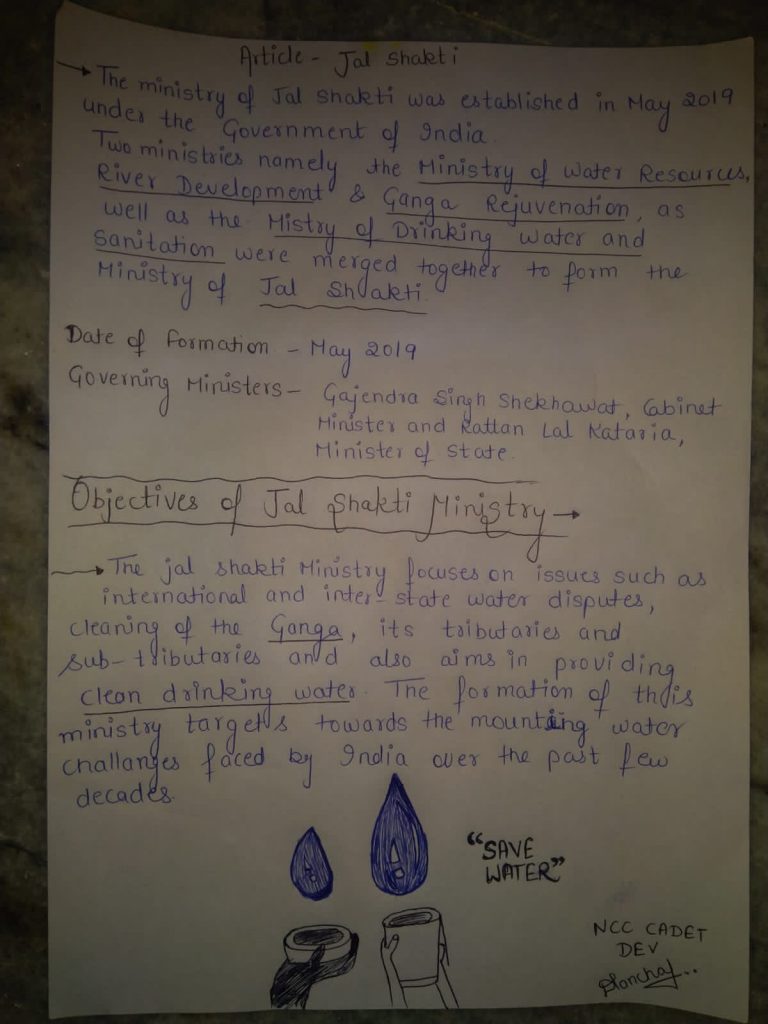 Article - Jal Shakti
→ The ministry of Jal Shakti was established in May 2019
under the Government of India.
Two ministries namely the Ministry of Water Resources,
River Development & Ganga Rejuvenation, as
well as the Mistry of Drinking Water and
Sanitation were merged together to form the
Ministry of Jal Shakti.
Date of Formation - May 2019
Governing Ministers - Gajendra Singh Shekhawat, Cabinet
Minister and Rattan Lal Kataria,
Minister of State.
Objectives of Jal Shakti Ministry →
→ The jal shakti Ministry focuses on issues such as
international and inter-state water disputes,
cleaning of the Ganga, its tributaries and
sub-tributaries and also aims in providing
clean drinking water. The formation of this
ministry targets towards the mounting water
challanges faced by India over the past few
decades.
"SAVE
WATER"
NCC CADET
DEV